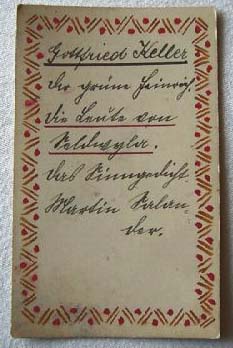 Gottfried Keller
Der grüne Heinrich.
Die Leute von
Seldwyla.
Das Sinngedicht
Martin Salan-
der.